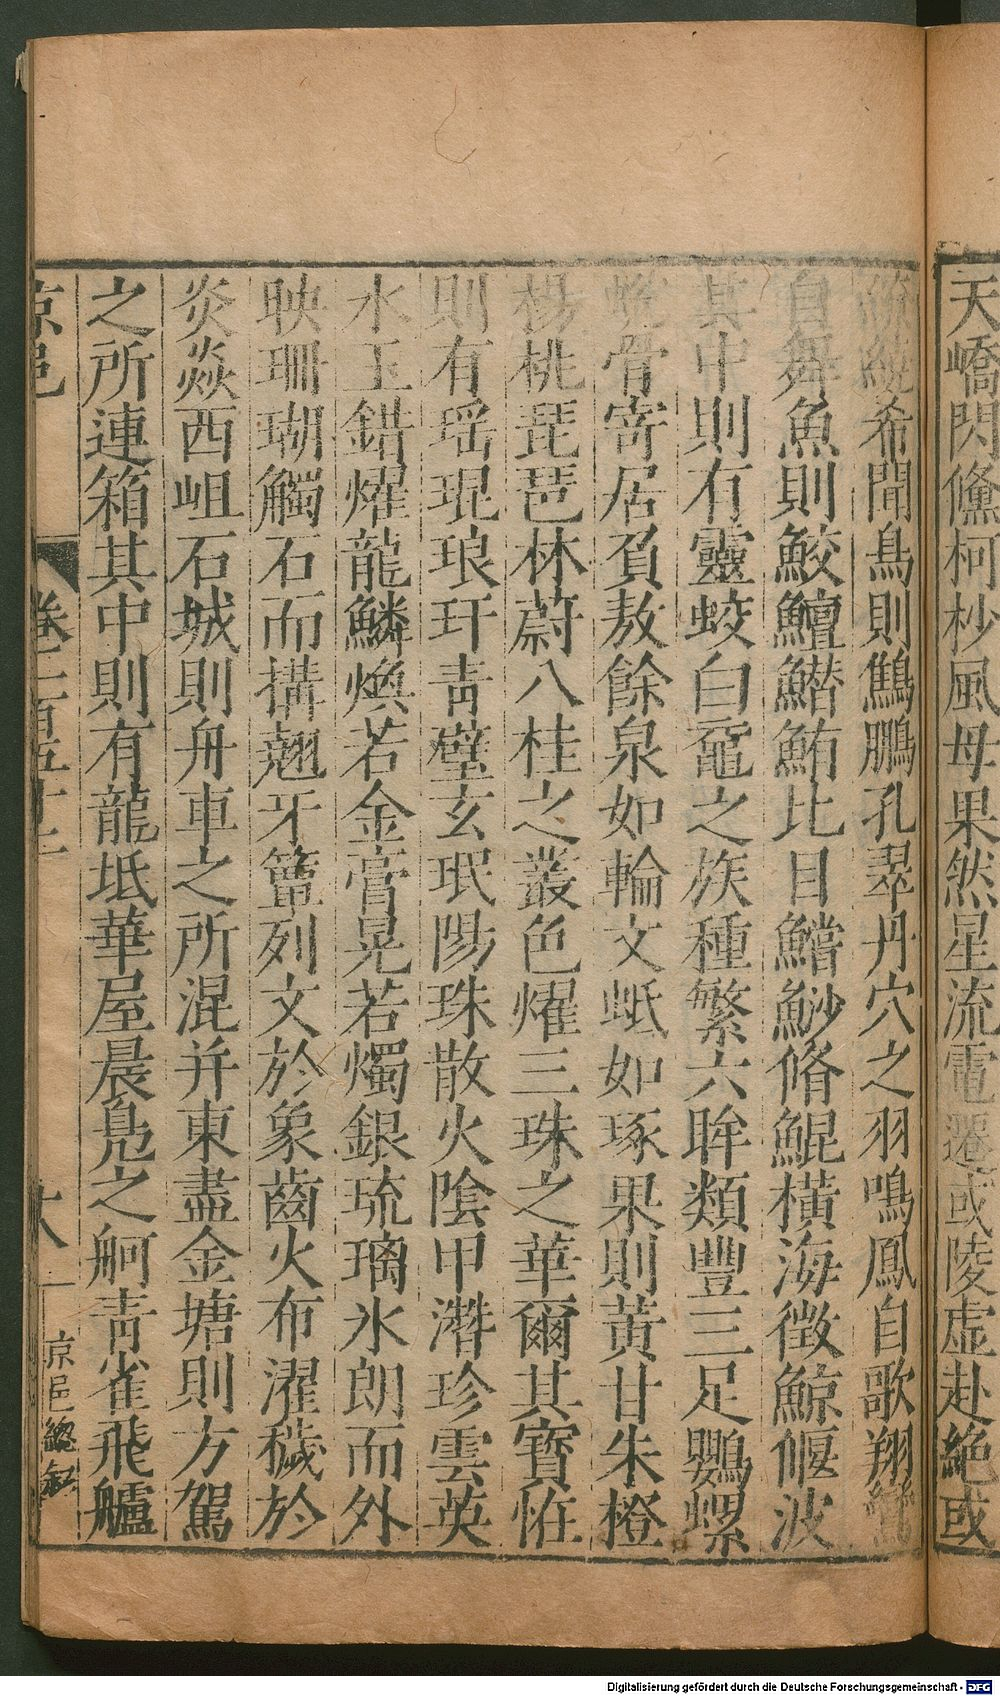 天嶠閃儵柯杪風母果然星流電遷或陵虛赴絶或
希聞鳥則鷦鵬孔翠丹穴之羽鳴鳳自歌翔鸞
自舞魚則鮫鱣鱛鮪比目鱨魦脩鯤橫海徵鯨偃波
其中則有靈蛟白黿之族種繁六眸類豐三足鸚螺
蜕骨寄居負敖餘泉如輪文蚳如琢果則黃甘朱橙
楊桃琵琶林蔚八桂之叢色燿三珠之華爾其寶恠
則有瑶琨琅玕青壁玄珉陽珠散火陰甲潛珍雲英
水玉錯燿龍鱗煥若金膏晃若燭銀琉璃氷朗而外
映珊瑚觸石而搆翹牙簟列文於象齒火布濯穢於
炎燚西岨石城則舟車之所混并東盡金塘則方駕
之所連箱其中則有龍坻華屋晨鳧之舸青雀飛艫
京邑 卷二百五十二 十八 京邑總敘
Digitalisierung gefördert durch die Deutsche Forschungsgemeinschaft - DFG